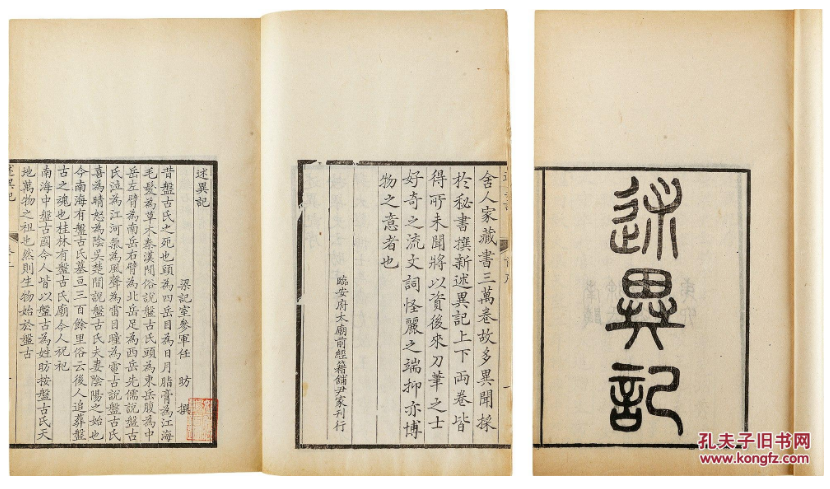 述異記
舍人家藏書三萬卷故多異聞採
於秘書撰新述異記上下兩卷皆
得所未聞將以資後來刀筆之士
好奇之流文詞怪麗之端抑亦博
物之意者也
臨安府太廟前經籍鋪尹家刊行
述異記
梁記室參軍任昉撰
昔盤古氏之死也頭為四岳目為日月脂膏為江海
毛髮為草木秦漢間俗說盤古氏頭為東岳腹為中
岳左臂為南岳右臂為北岳足為西岳先儒說盤古
氏泣為江河氣為風聲為雷目瞳為電古說盤古氏
喜為晴怒為陰吳楚間說盤古氏夫妻陰陽之始也
今南海有盤古氏墓亘三百餘里俗云後人追葬盤
古之魂也桂林有盤古氏廟今人祝祀
南海中盤古國今人皆以盤古為姓昉按盤古氏天
地萬物之祖也然則生物始於盤古
述異記
孔夫子旧书网
www.kongfz.com